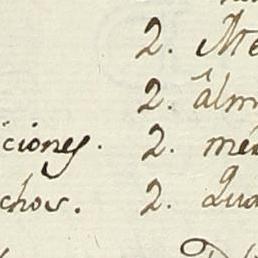 2. Me
2. âlm
ciones. 2. me
chos. 2. Qua